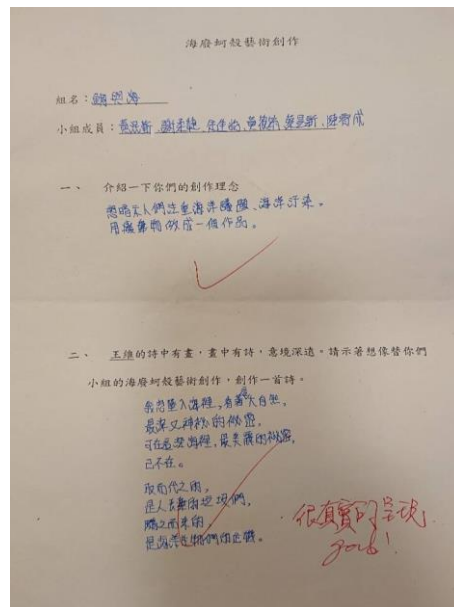 海廢蚵殼藝術創作
組名：鯨與海
小組成員：
一、 介紹一下你們的創作理念
想喚太人們注重海洋議題、海洋汙染。
用廢棄物做成一個作品。
二、 王維的詩中有畫，畫中有詩，意境深遠。請示著想像替你們
小組的海廢蚵殼藝術創作，創作一首詩。
墜入海裡，有著大自然，
最深又神祕的祕密，
可在這裡，最美麗的祕密，
已不在。
取而代之的，
是人丟棄的垃圾們，
隨之而來的
是海洋生物們的危機。
很真實的呈現
good!